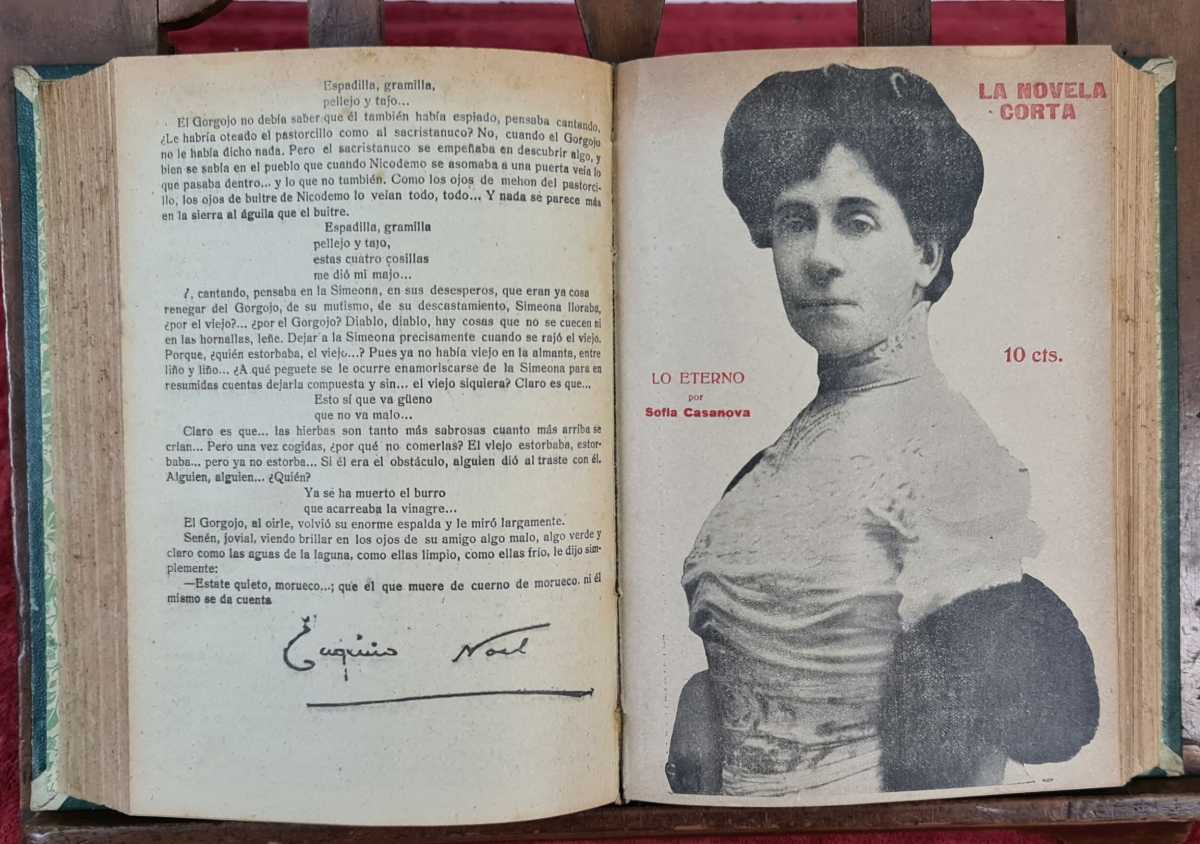 Espadilla, gramilla,
pellejo y tajo...
El Gorgojo no debía saber que él también había espiado, pensaba cantando,
¿Le habría oteado el pastorcillo como al sacristanuco? No, cuando el Gorgojo
no le había dicho nada. Pero el sacristanuco se empeñaba en descubrir algo, y
bien se sabía en el pueblo que cuando Nicodemo se asomaba a una puerta veía lo
que pasaba dentro... y lo que no también. Como los ojos de mehon del pastorci-
llo, los ojos de buitre de Nicodemo lo veían todo, todo... Y nada se parece más
en la sierra al águila que el buitre.
Espadilla, gramilla
pellejo y tajo,
estas cuatro cosillas
me dió mi majo...
¿, cantando, pensaba en la Simeona, en sus desesperos, que eran ya cosa
renegar del Gorgojo, de su mutismo, de su descastamiento, Simeona lloraba,
¿por el viejo?... ¿por el Gorgojo? Diablo, diablo, hay cosas que no se cuecen ni
en las hornallas, leñe. Dejar a la Simeona precisamente cuando se rajó el viejo.
Porque, ¿quién estorbaba, el viejo...? Pues ya no había viejo en la almanta, entre
liño y liño... ¿A qué peguete se le ocurre enamoriscarse de la Simeona para en
resumidas cuentas dejarla compuesta y sin... el viejo siquiera? Claro es que...
Esto sí que va güeno
que no va malo...
Claro es que... las hierbas son tanto más sabrosas cuanto más arriba se
crían... Pero una vez cogidas, ¿por qué no comerlas? El viejo estorbaba, estor-
baba... pero ya no estorba... Si él era el obstáculo, alguien dió al traste con él.
Alguien, alguien... ¿Quién?
Ya se ha muerto el burro
que acarreaba la vinagre...
El Gorgojo, al oirle, volvió su enorme espalda y le miró largamente.
Senén, jovial, viendo brillar en los ojos de su amigo algo malo, algo verde y
claro como las aguas de la laguna, como ellas limpio, como ellas frío, le dijo sim-
plemente:
—Estate quieto, morueco...; que el que muere de cuerno de morueco. ni él
mismo se da cuenta
Eugenio Noel
LA NOVELA
CORTA
10 cts.
LO ETERNO
por
Sofía Casanova